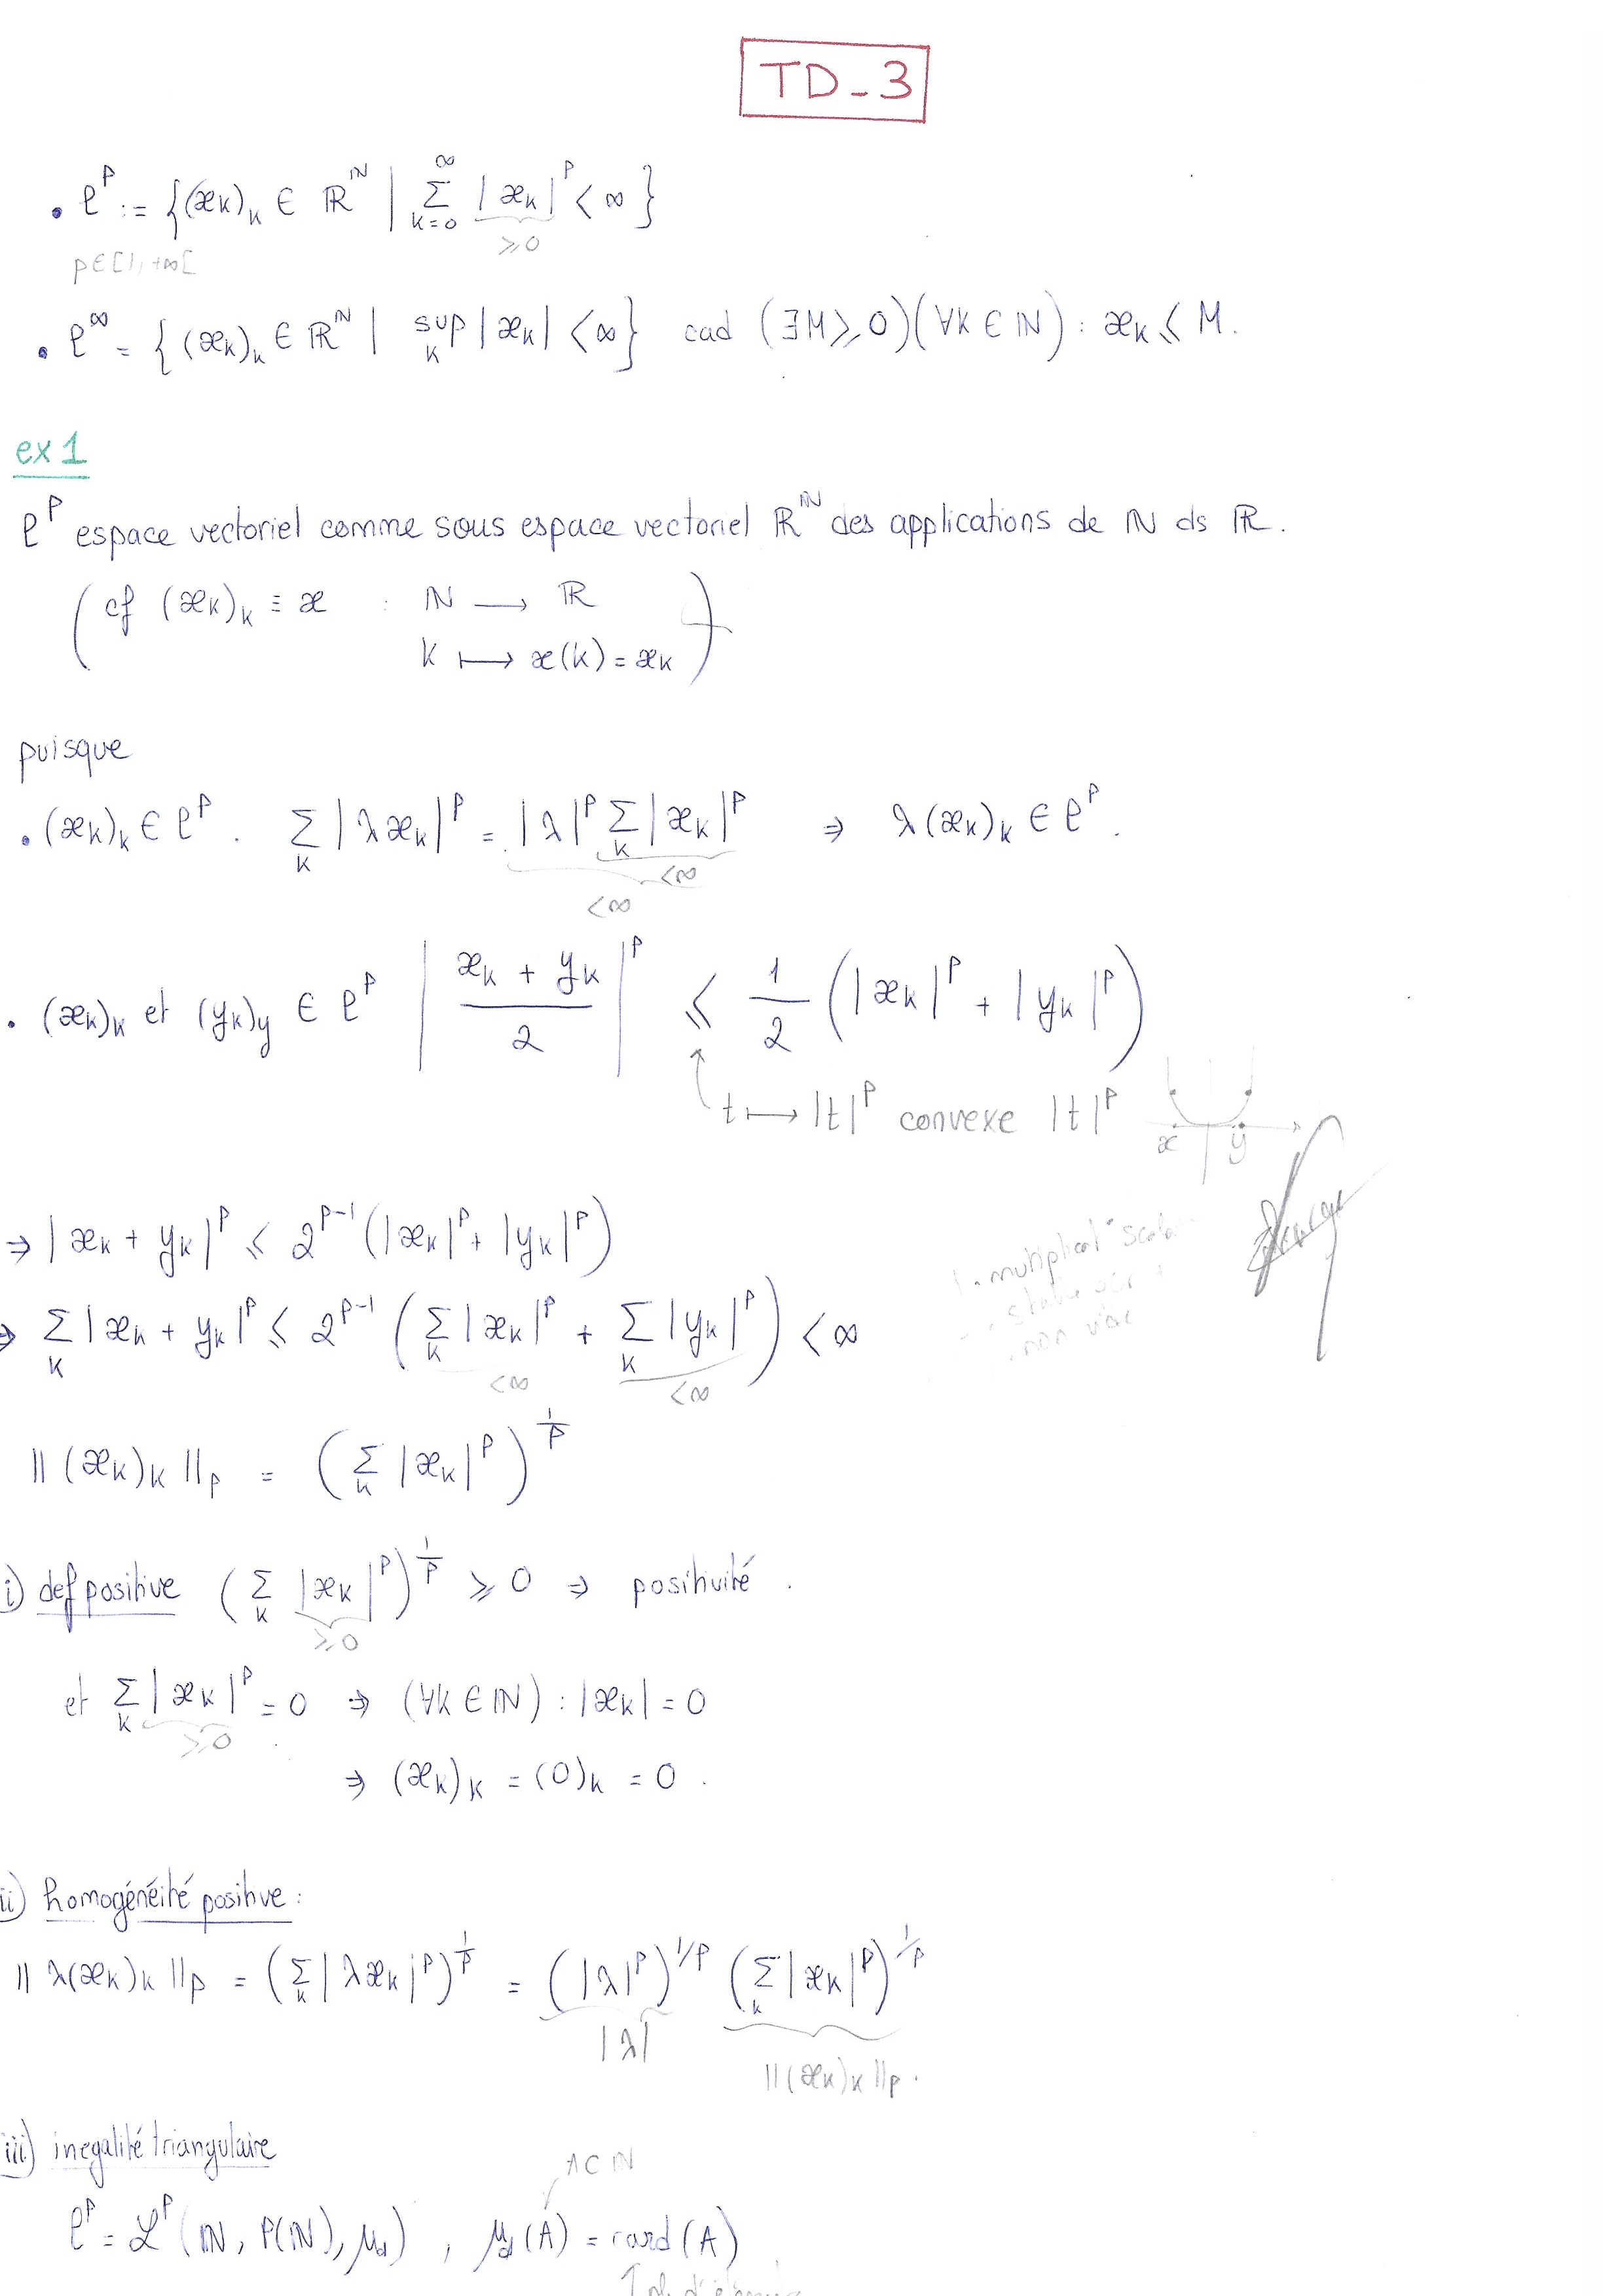 TD_3
• ℓ^p := {(x_k)_k ∈ ℝ^ℕ | ∑_{k=0}^{∞} |x_k|^p < ∞}
≥0
p∈[1,+∞[
• ℓ^∞ = {(x_k)_k ∈ ℝ^ℕ | sup_k |x_k| < ∞} cad (∃M ≥ 0)(∀k ∈ ℕ) : x_k ≤ M.
ex 1
ℓ^p espace vectoriel comme sous espace vectoriel ℝ^ℕ des applications de ℕ ds ℝ.
(cf (x_k)_k ≡ x : ℕ ⟶ ℝ
k ⟼ x(k) = x_k)
puisque
• (x_k)_k ∈ ℓ^p . ∑_k |λx_k|^p = |λ|^p ∑_k |x_k|^p ⇒ λ(x_k)_k ∈ ℓ^p.
<∞
<∞
• (x_k)_k et (y_k)_y ∈ ℓ^p |(x_k + y_k)/2|^p ≤ 1/2 (|x_k|^p + |y_k|^p)
t ⟼ |t|^p convexe |t|^p
x y
⇒ |x_k + y_k|^p ≤ 2^{p-1} (|x_k|^p + |y_k|^p)
. multiplicat° scala
⇒ ∑_k |x_k + y_k|^p ≤ 2^{p-1} (∑_k |x_k|^p + ∑_k |y_k|^p) < ∞
. non vide
<∞ <∞
‖(x_k)_k‖_p = (∑_k |x_k|^p)^{1/p}
i) def positive (∑_k |x_k|^p)^{1/p} ≥ 0 ⇒ positivité.
≥0
et ∑_k |x_k|^p = 0 ⇒ (∀k ∈ ℕ) : |x_k| = 0
≥0
⇒ (x_k)_k = (0)_k = 0.
ii) homogénéité positive :
‖λ(x_k)_k‖_p = (∑_k |λx_k|^p)^{1/p} = (|λ|^p)^{1/p} (∑_k |x_k|^p)^{1/p}
|λ| ‖(x_k)_k‖_p.
iii) inegalité triangulaire
A⊂ℕ
ℓ^p = ℒ^p(ℕ, P(ℕ), μ_d) , μ_d(A) = card(A)